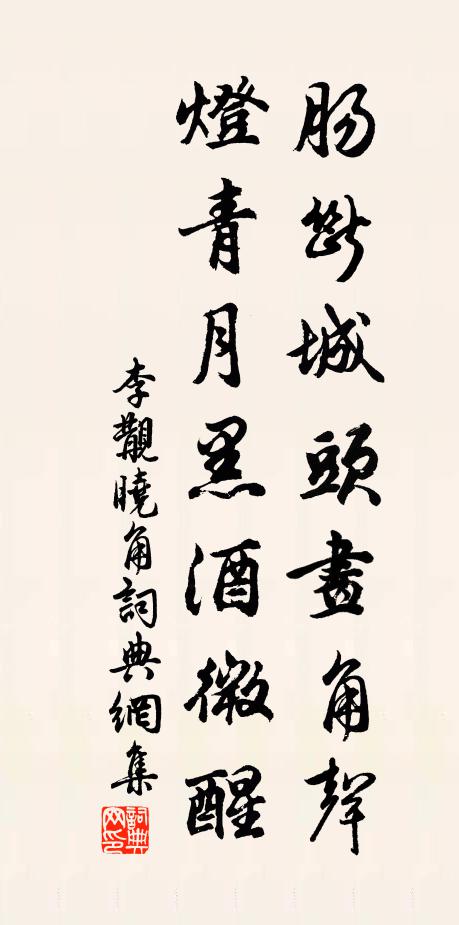 腸斷城頭畫角聲
燈青月黑酒微醒
李覯曉角詞典網集
詞典網印